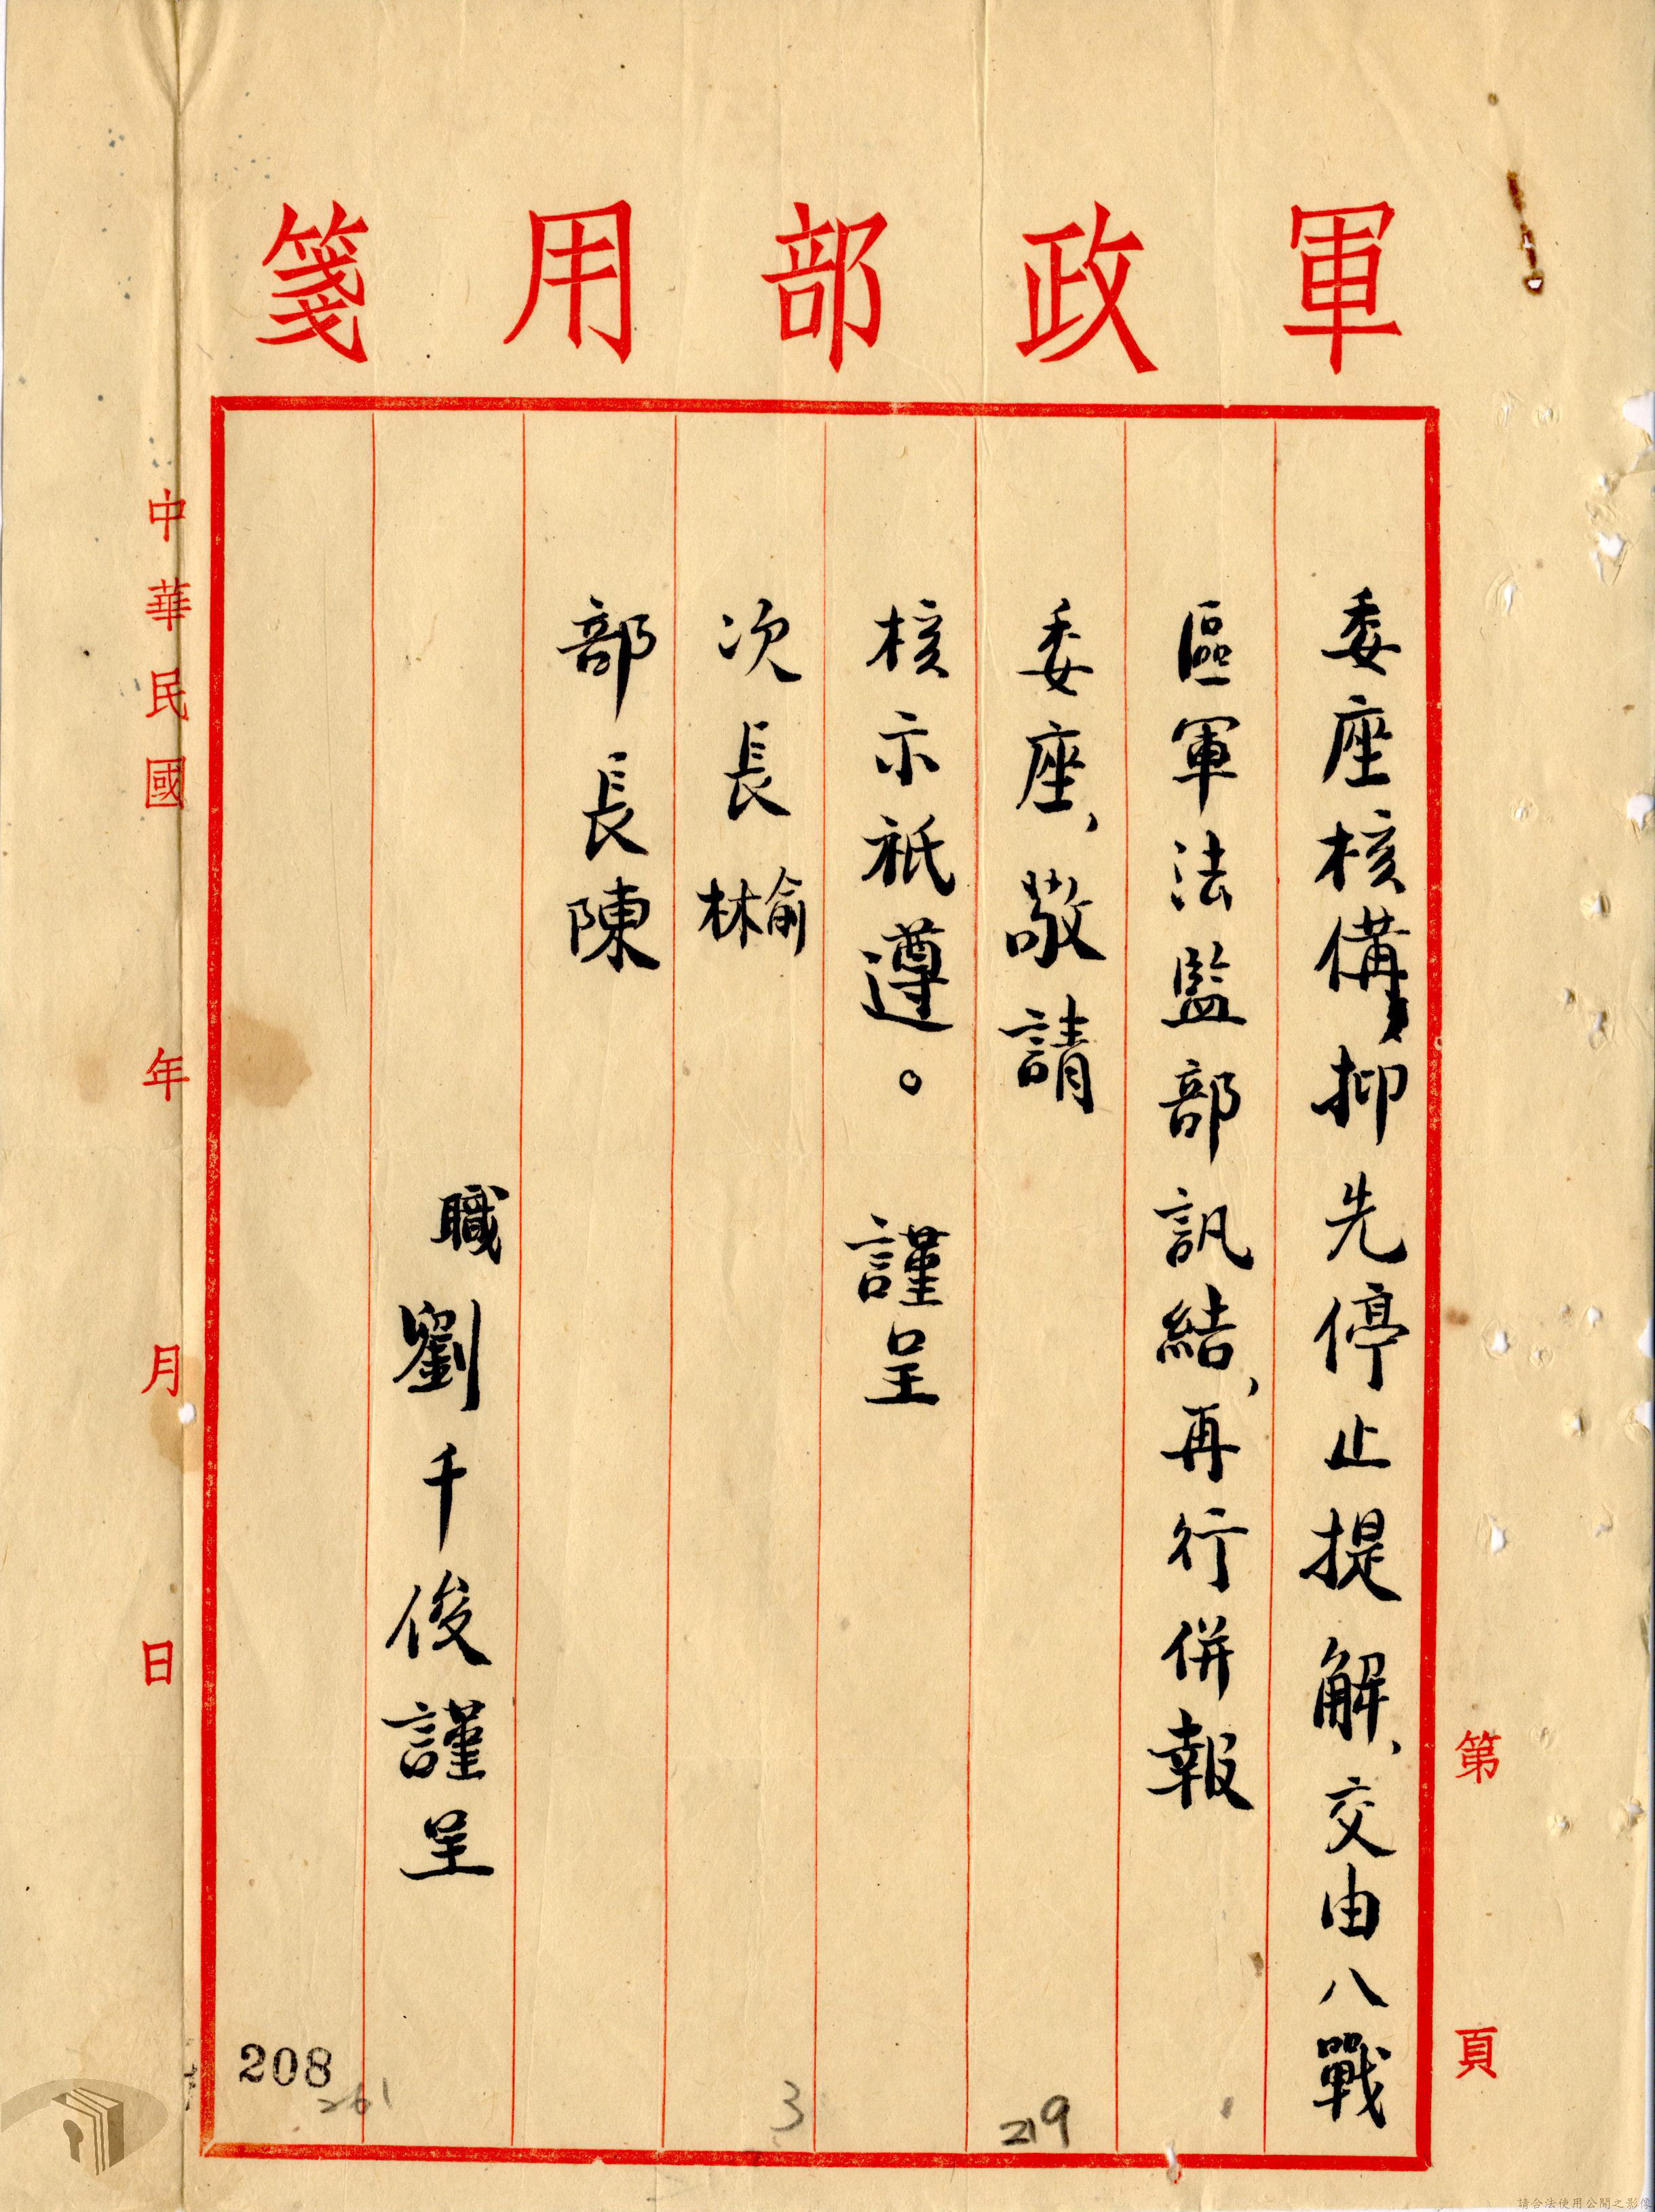 軍政部用箋
第 頁
委座核備抑先停止提解、交由八戰
區軍法監部訊結、再行併報
委座、敬請
核示祇遵。 謹呈
次長林俞
部長陳
職劉千俊謹呈
中華民國 年 月 日
208
261
3
219
請合法使用公開之影像